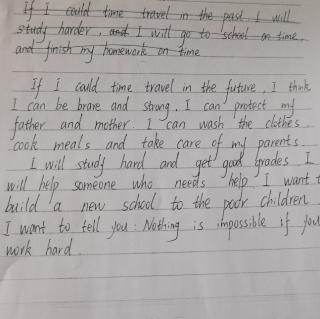 If I could time travel in the past. I will
study harder, and I will go to school on time
and finish my homework on time
If I could time travel in the future, I think
I can be brave and strong. I can protect my
father and mother. I can wash the clothes.
cook meals and take care of my parents.
I will study hard and get good grades. I
will help someone who needs help. I want t
build a new school to the poor children
I want to tell you: Nothing is impossible if you
work hard.